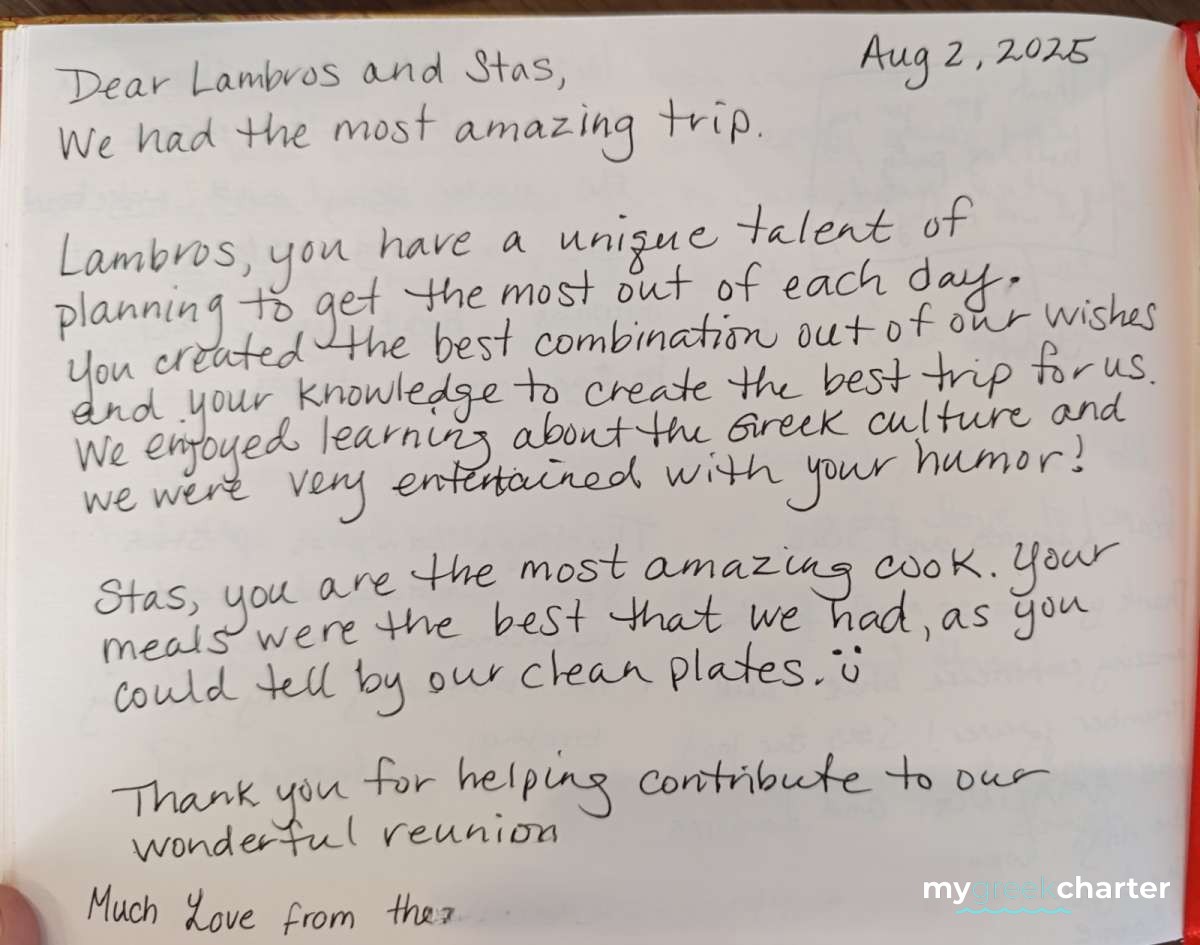 Aug 2, 2025
Dear Lambros and Stas,
We had the most amazing trip.
Lambros, you have a unique talent of
planning to get the most out of each day.
You created the best combination out of our wishes
and your knowledge to create the best trip for us.
We enjoyed learning about the Greek culture and
we were very entertained with your humor!
Stas, you are the most amazing cook. Your
meals were the best that we had, as you
could tell by our clean plates. Ü
Thank you for helping contribute to our
wonderful reunion
Much Love from the
mygreekcharter